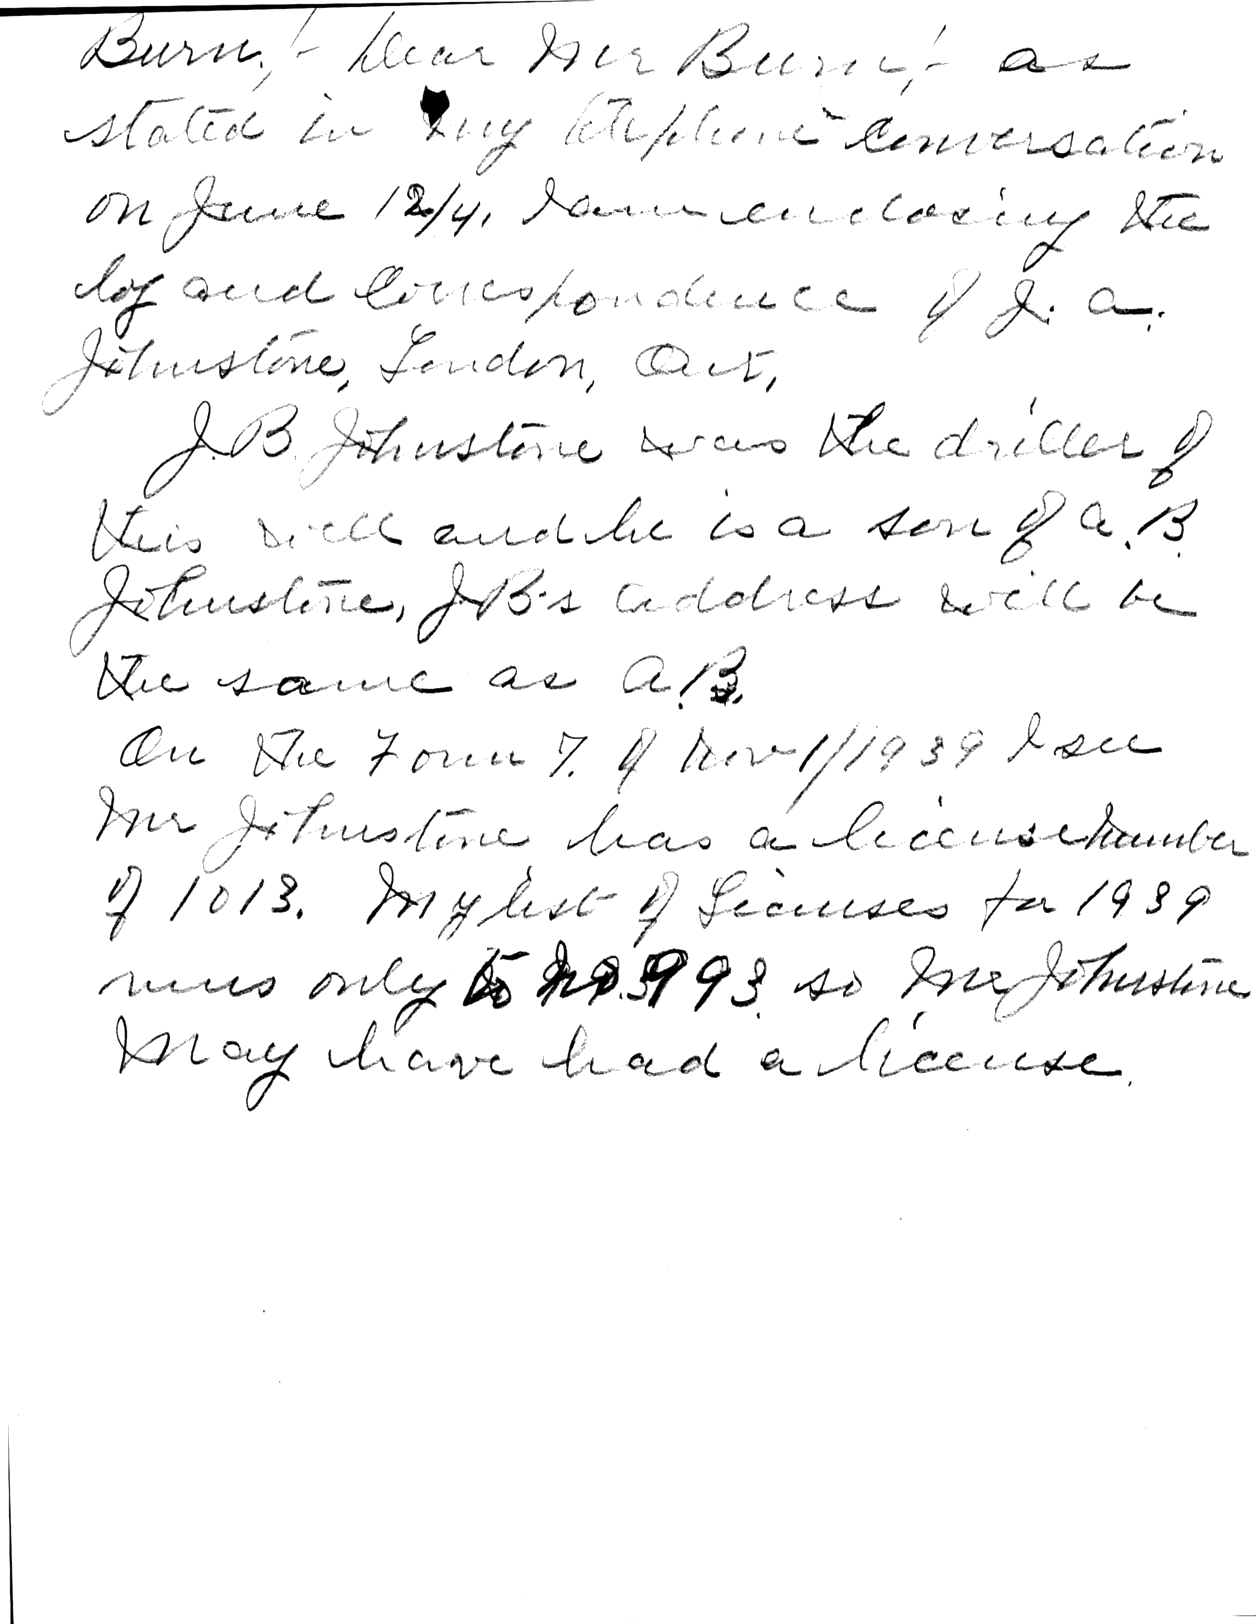 Burn,!- Dear Mr Burn,!- as
stated in my telephone conversation
on June 12/41 I am enclosing the
log and correspondence of J. A.
Johnstone, London, Ont,
J.B. Johnstone was the driller of
this well and he is a son of A.B.
Johnstone, J.B's address will be
the same as A.B.
On the Form 7. of Nov 1/1939 I see
Mr Johnstone has a license number
of 1013. My list of Licenses for 1939
runs only to No. 993 so Mr Johnstone
May have had a license.